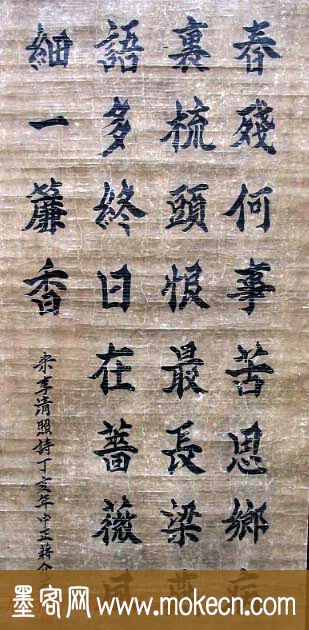 春殘何事苦思鄉
裏梳頭恨最長梁
語多終日在薔薇
細一簾香
宋李清照詩丁亥年中正蔣
墨客网 www.mokecn.com